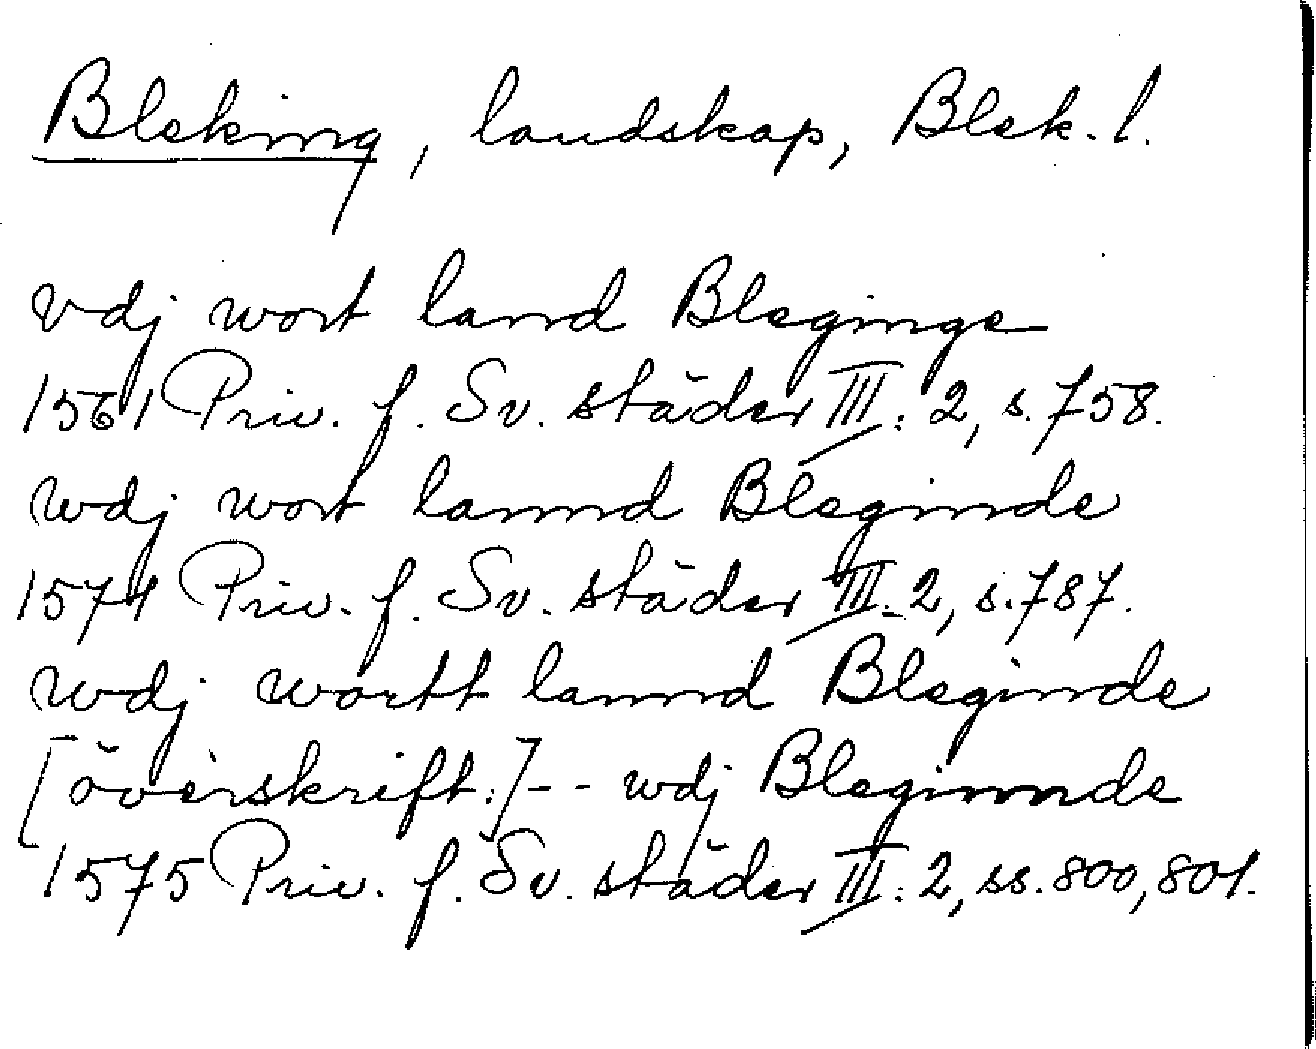 Bleking, landskap, Blek. l.
vdj wort land Bleginge
1561 Priv. f. Sv. städer III: 2, s. 758.
wdj wort lannd Bleginde
1574 Priv. f. Sv. städer III: 2, s. 787.
wdj wortt lannd Bleginde
[överskrift:] - - wdj Bleginnde
1575 Priv. f. Sv. städer III: 2, ss. 800, 801.